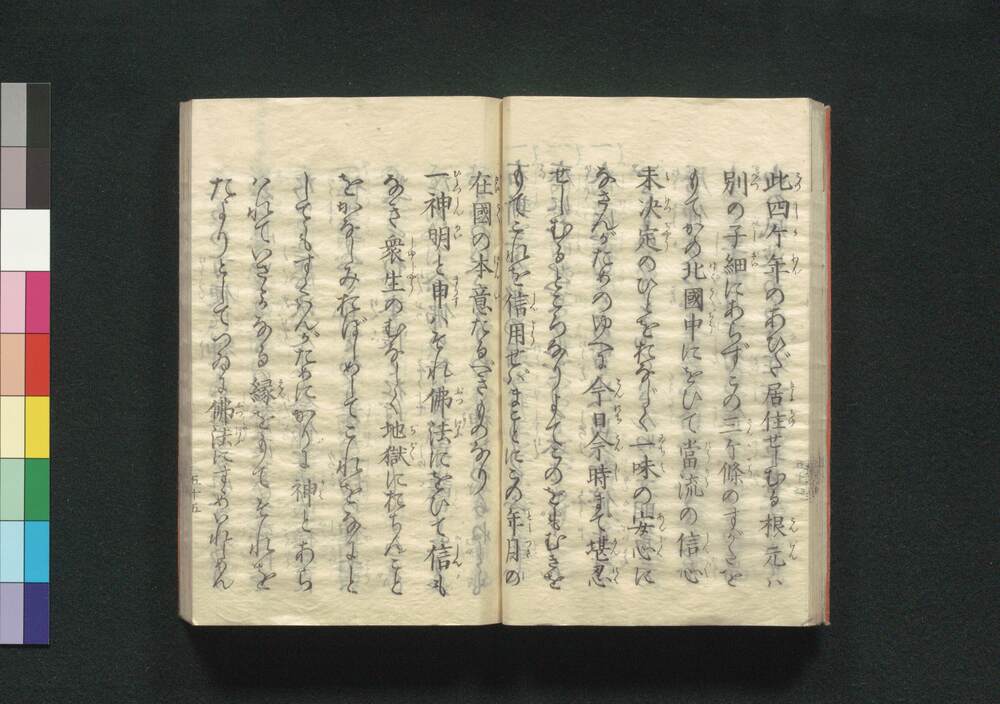 此四ケ年のあひだ居住せしむる根元ハ
別の子細にあらずこの三ケ條のすがたを
もてかの北國中にをひて當流の信心
未决定のひとをおなじく一味の安心に
なさんがためのゆへに今日今時まて堪忍
せしむるところなりよてこのをもむきを
もてこれを信用せバまことにこの年月の
在國の本意たるべきものなり
一神明と申ハそれ佛法にをひて信も
なき衆生のむなしく地獄におちんこと
をかなしみおぼしめしてこれをなにと
してもすくハんがためにかりに神とあら
ハれていさゝかなる縁をもてそれを
たよりとしてつゐに佛法にすゝめいれしめん
五十五